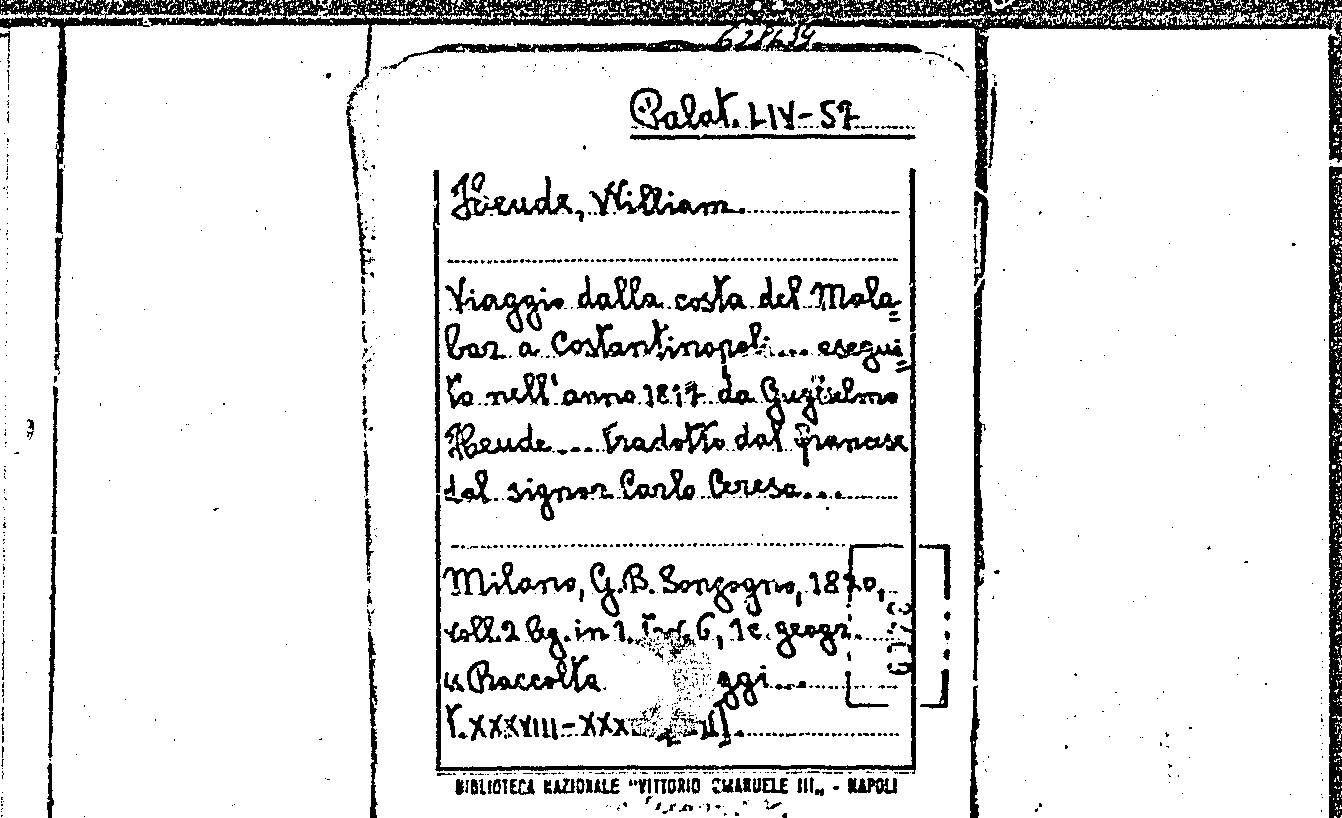 628639
Palat. LIV-57
Heude, William.
Viaggio dalla costa del Mala=
bar a Costantinopoli... esegui=
to nell'anno 1817 da Guglielmo
Heude... tradotto dal francese
dal signor Carlo Ceresa...
Milano, G.B. Sonzogno, 1820,
voll. 2 lg. in 1. Tav. 6, 1 c. geogr.
"Raccolta ggi...
T. XXXVIII-XXX
BIBLIOTECA NAZIONALE "VITTORIO EMANUELE III„ - NAPOLI